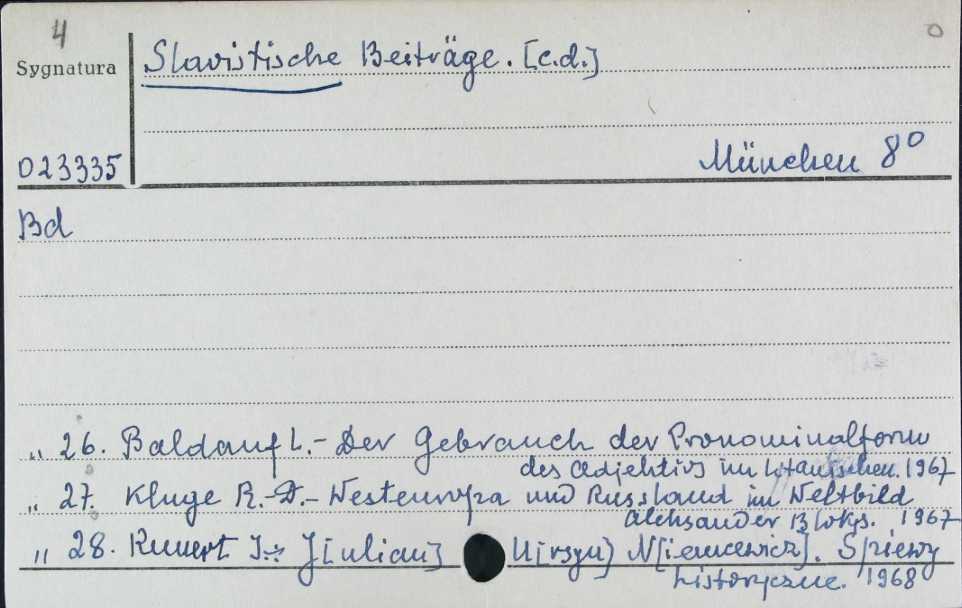 4
Slavistische Beiträge. [c.d.]
Sygnatura
023335
München 8°
Bd
„ 26. Baldauf L. - Der Gebrauch der Pronominalform
des Adjektivs im Litauischen. 1967
„ 27. Kluge R.-D. - Westeuropa und Russland im Weltbild
Aleksander Bloks. 1967
„ 28. Kunert I. : J[ulian] U[rsyn] N[iemcewicz]. Śpiewy
historyczne. 1968